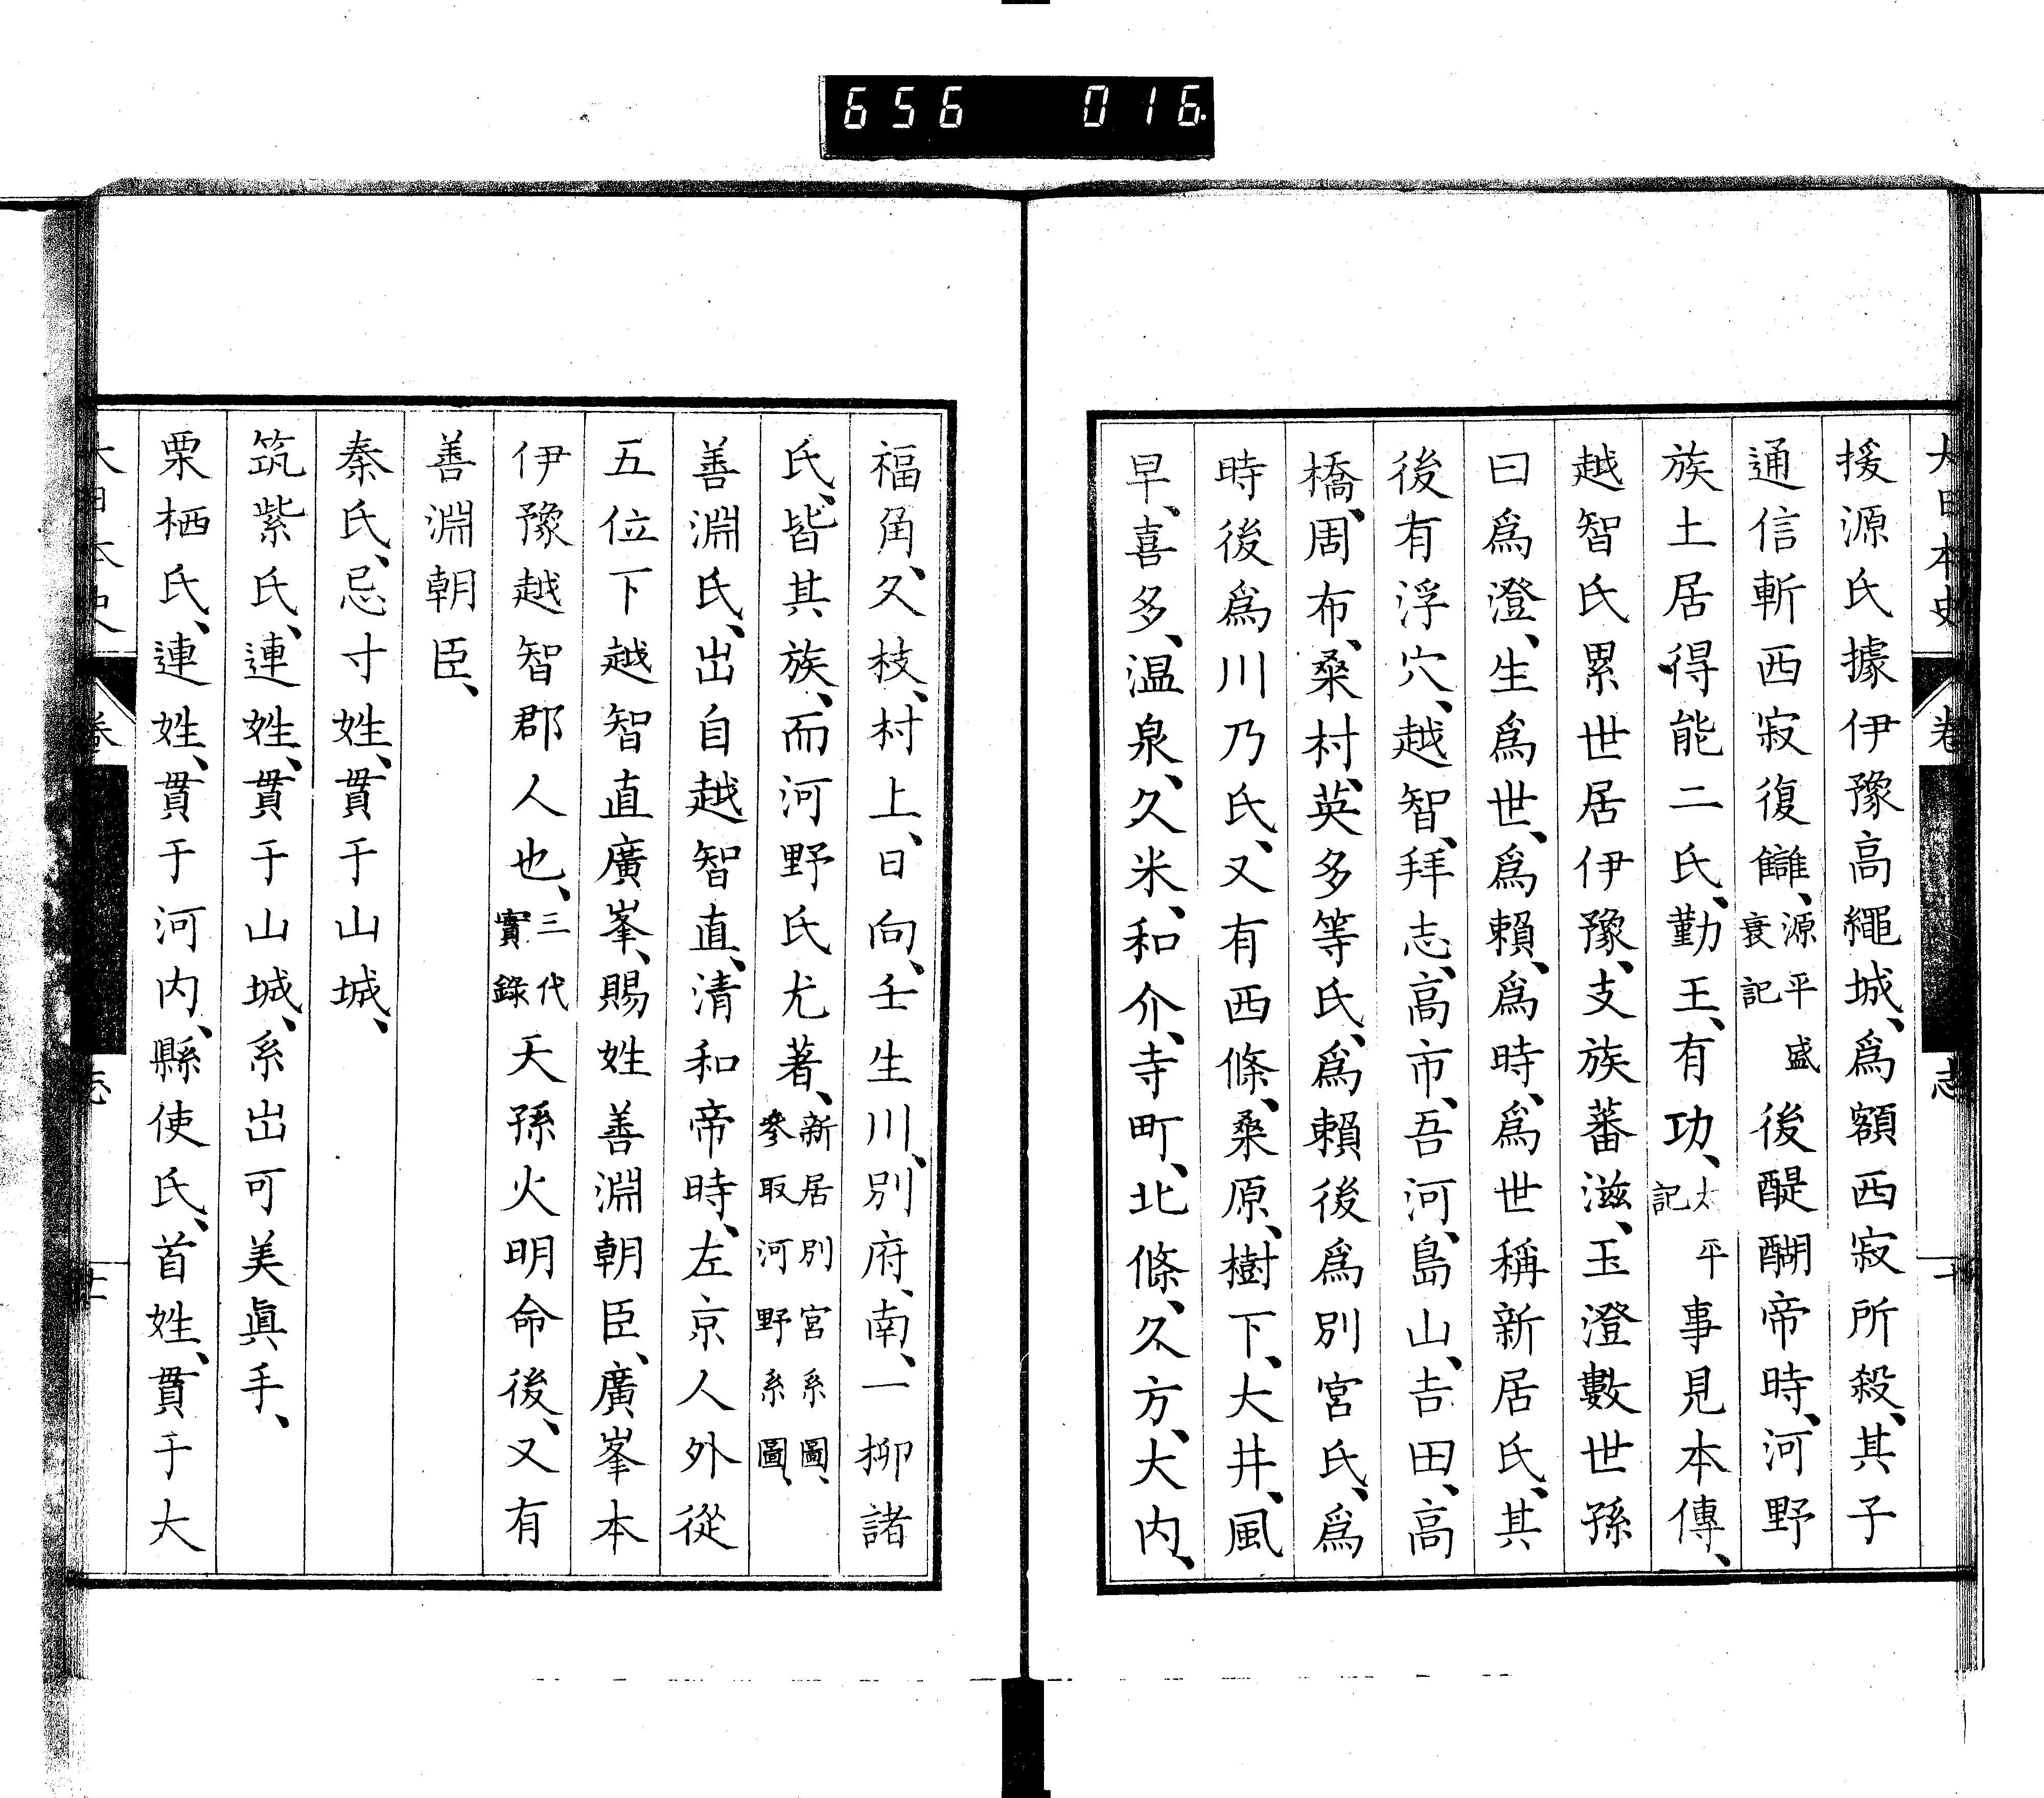 656 016.
大日本史 卷 志
援源氏據伊豫高繩城、爲額西寂所殺、其子
通信斬西寂復讎、源平盛衰記 後醍醐帝時、河野
族土居得能二氏、勤王、有功、太平記 事見本傳、
越智氏累世居伊豫、支族蕃滋、玉澄數世孫
曰爲澄、生爲世、爲賴、爲時、爲世稱新居氏、其
後有浮穴、越智、拜志、高市、吾河、島山、吉田、高
橋、周布、桑村、英多等氏、爲賴後爲別宮氏、爲
時後爲川乃氏、又有西條、桑原、樹下、大井、風
早、喜多、温泉、久米、和介、寺町、北條、久方、大内、
福角、久枝、村上、日向、壬生川、別府、南、一柳諸
氏、皆其族、而河野氏尤著、新居別宮系圖、參取河野系圖、
善淵氏、出自越智直、清和帝時、左京人外從
五位下越智直廣峯、賜姓善淵朝臣、廣峯本
伊豫越智郡人也、三代實錄 天孫火明命後、又有
善淵朝臣、
秦氏、忌寸姓、貫于山城、
筑紫氏、連姓、貫于山城、系出可美眞手、
栗栖氏、連姓、貫于河内、縣使氏、首姓、貫于大
大日本史 卷 志